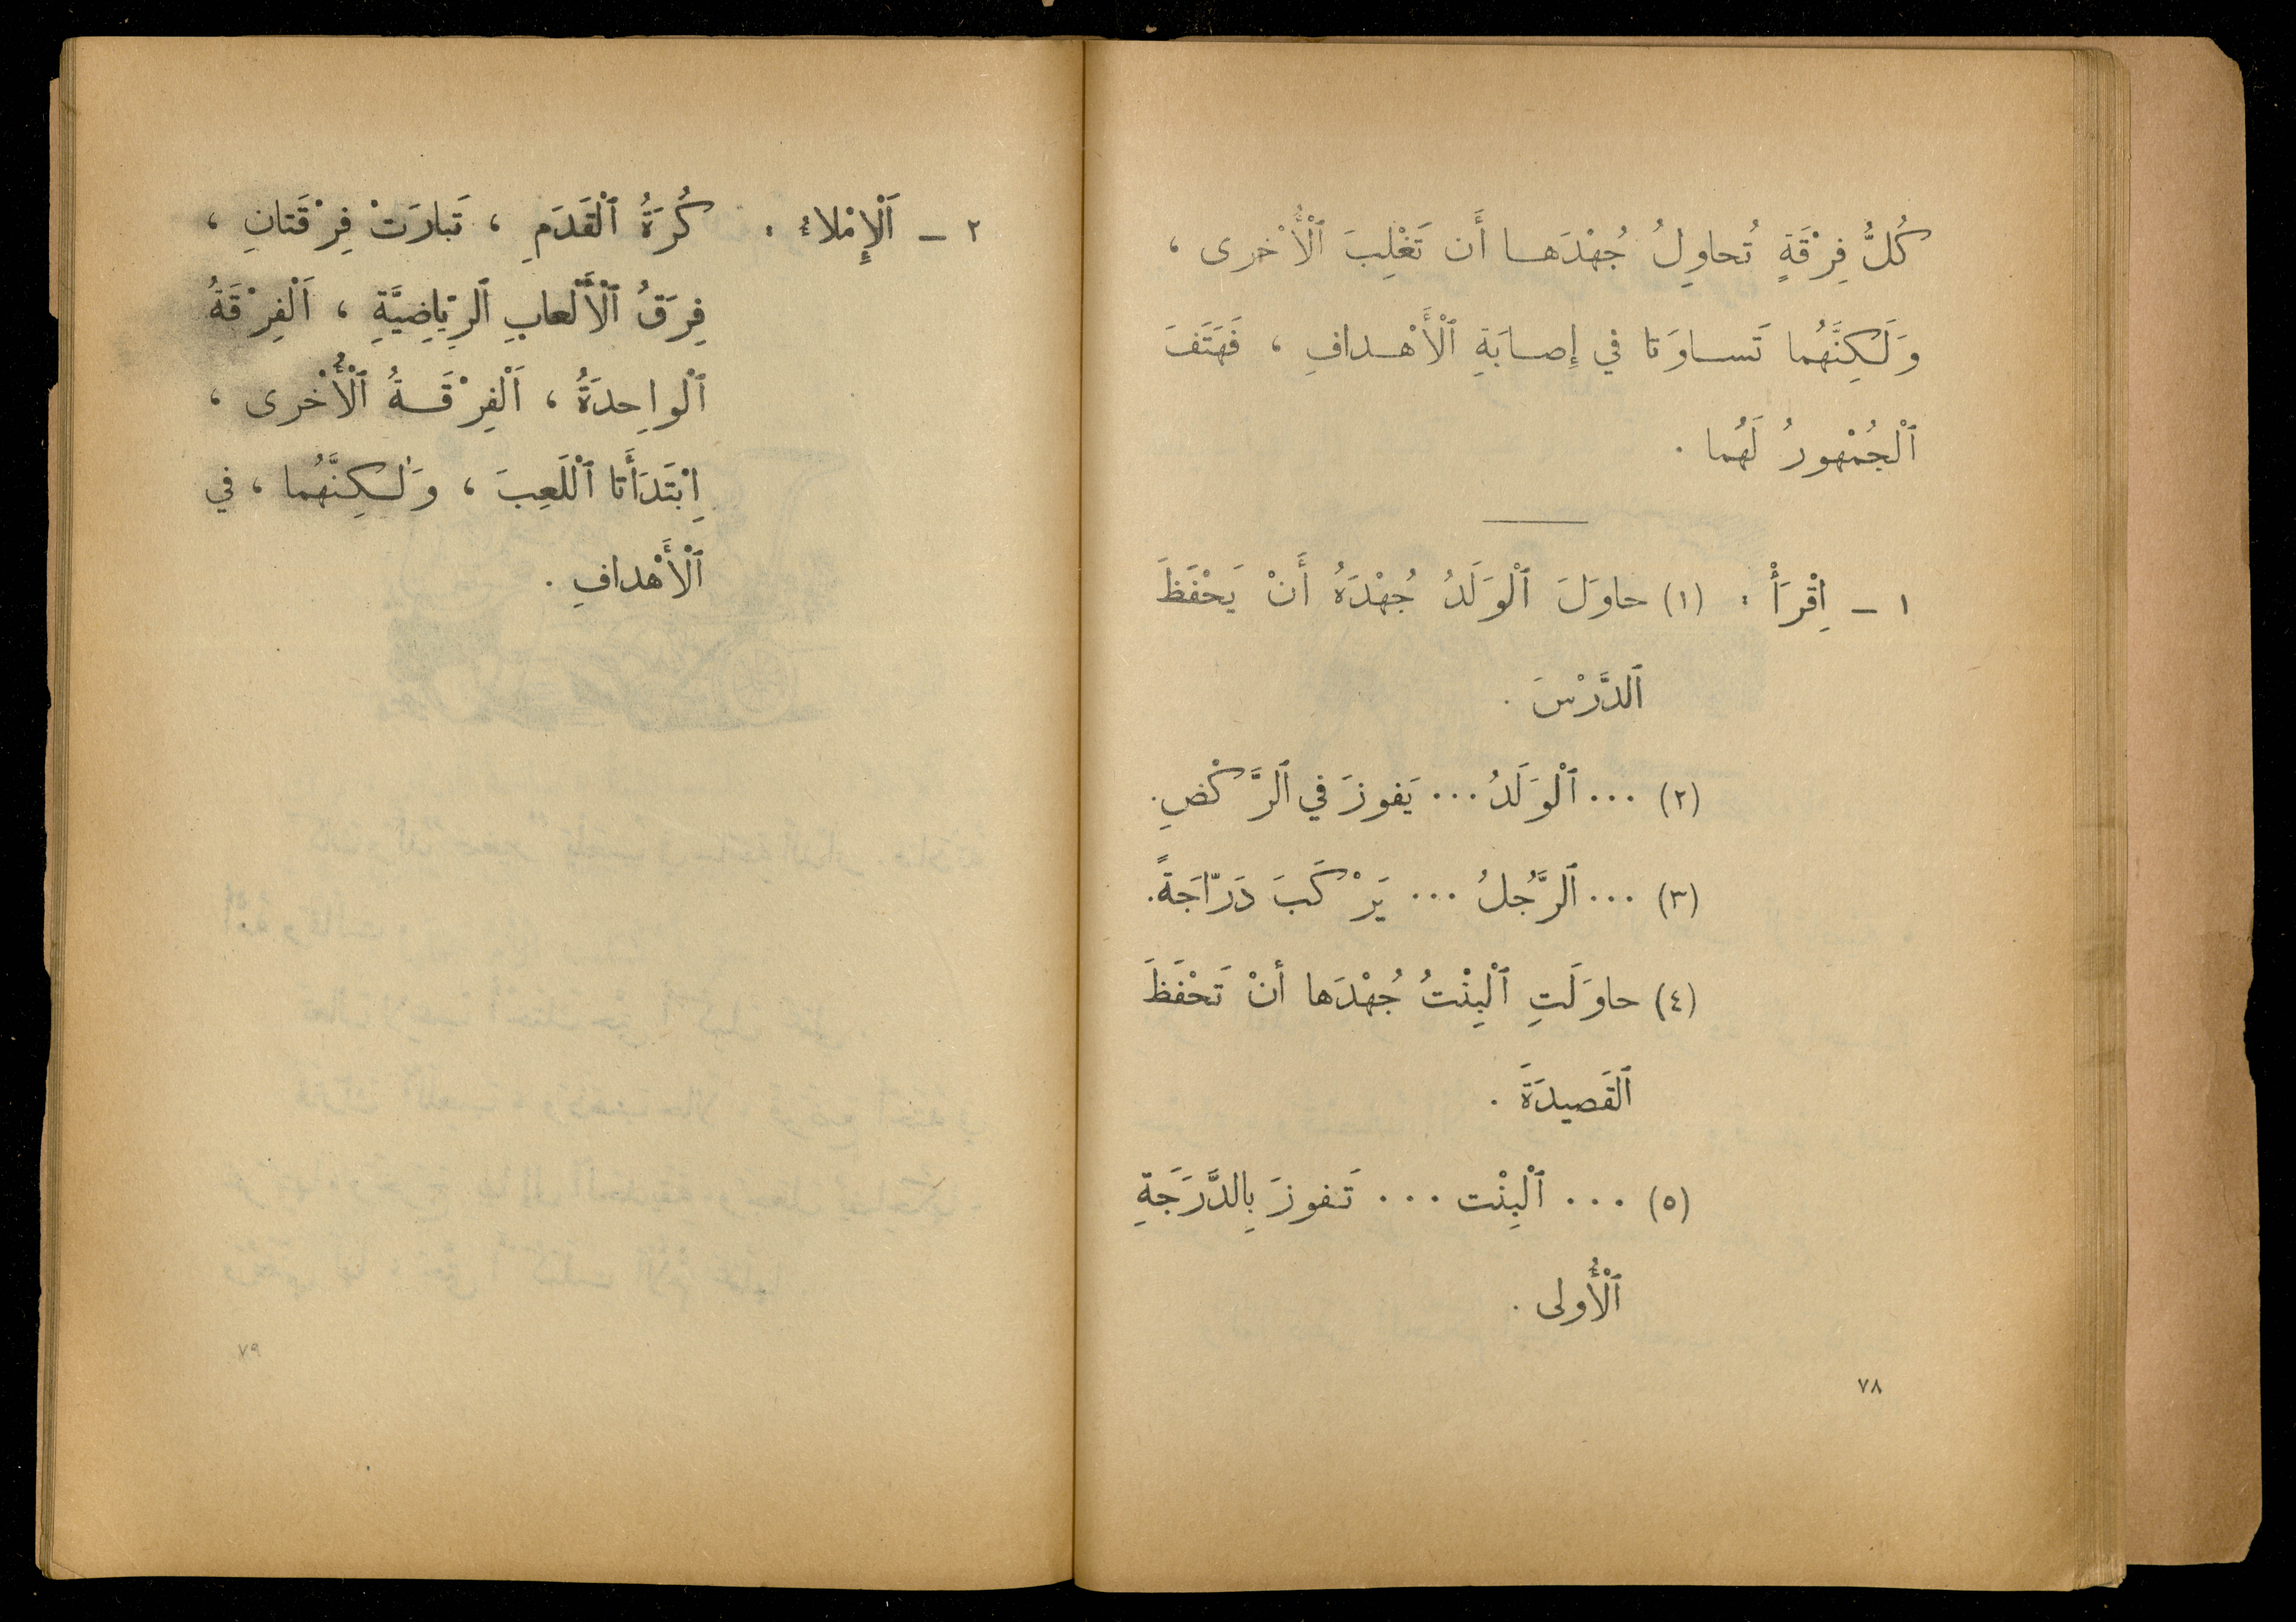 كُلُّ فِرْقَةٍ تُحاوِلُ جُهْدَها أَن تَغْلِبَ ٱلْأُخْرى ،
وَلَكِنَّهُما تَساوَتا في إِصابَةِ ٱلْأَهْدافِ ، فَهَتَفَ
ٱلْجُمْهورُ لَهُما .
١ – اِقْرَأْ : (١) حاوَلَ ٱلْوَلَدُ جُهْدَهُ أَنْ يَحْفَظَ
ٱلدَّرْسَ .
(٢) ... ٱلْوَلَدُ ... يَفوزَ في ٱلرَّكْضِ.
(٣) ... ٱلرَّجُلُ ... يَرْكَبَ دَرّاجَةً.
(٤) حاوَلَتِ ٱلْبِنْتُ جُهْدَها أنْ تَحْفَظَ
ٱلقَصيدَةَ .
(٥) ... ٱلْبِنْت ... تَفوزَ بِالدَّرَجَةِ
ٱلْأُولى .
٧٨
٢ – اَلْإِمْلاءُ : كُرَةُ ٱلْقَدَمِ ، تَبارَتْ فِرْقَتانِ ،
فِرَقُ ٱلْأَلْعابِ ٱلرِّياضِيَّةِ ، اَلْفِرْقَةُ
ٱلْواحِدَةُ ، اَلْفِرْقَةُ ٱلْأُخْرى ،
اِبْتَدَأَتا ٱللَّعِبَ ، وَلٰكِنَّهُما ، في
ٱلْأَهْدافِ .
٧٩